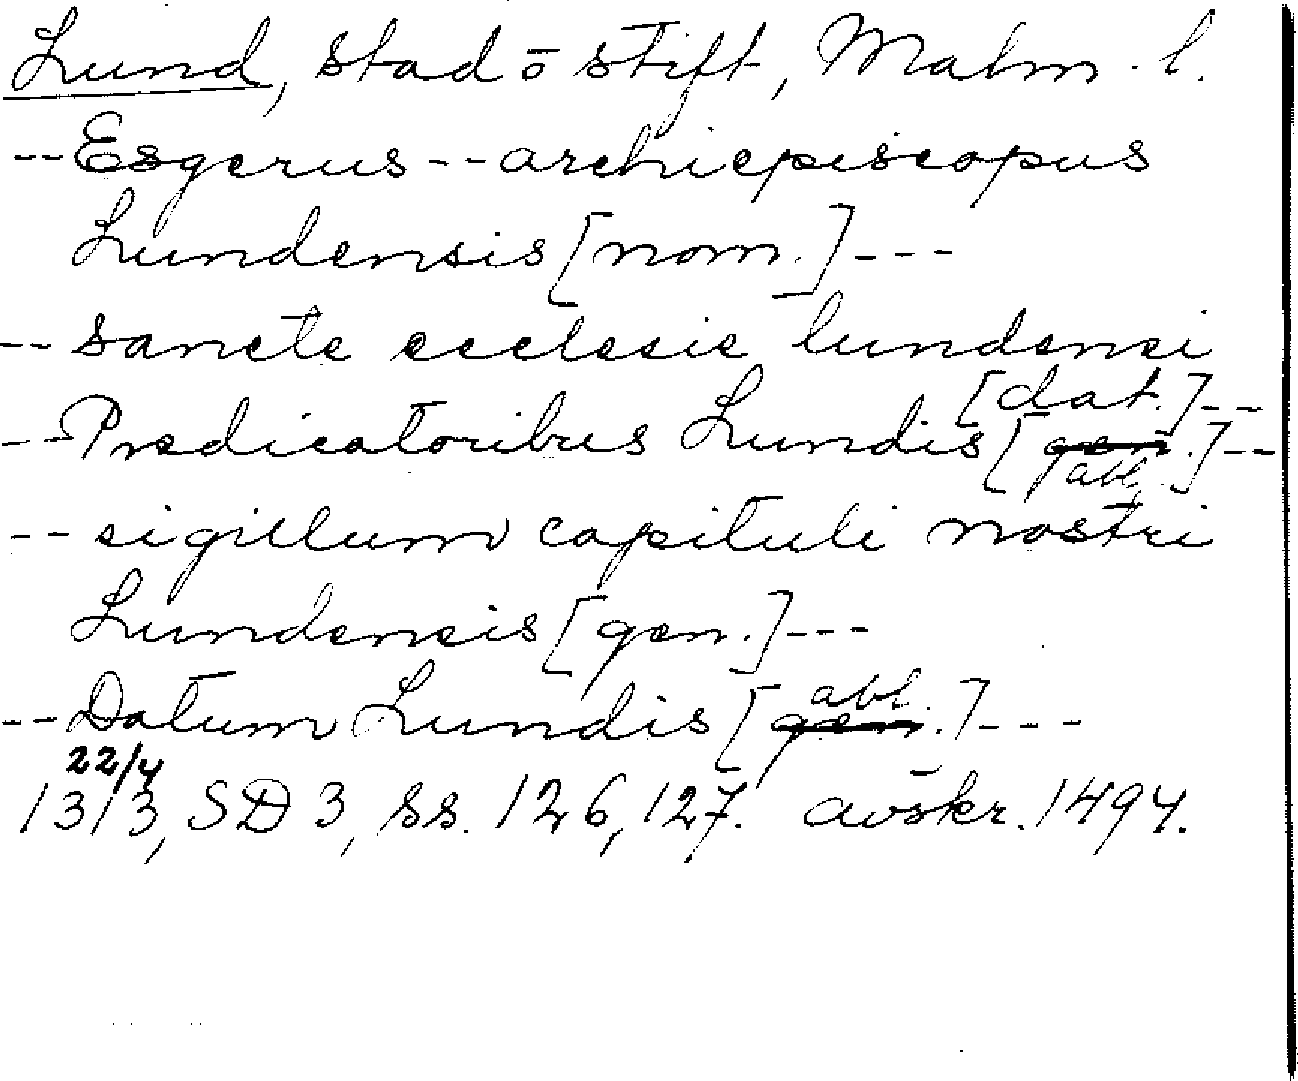 Lund, stad o stift, Malm. l.
--Esgerus--archiepiscopus
Lundensis [nom.]---
--sancte ecclesie lundensi
[dat.]--
--Predicatoribus Lundis [gen abl.]--
--sigillum capituli nostri
Lundensis [gen.]---
--Datum Lundis [gen abl.]---
22/4
1313, SD 3, ss. 126, 127. avskr. 1494.